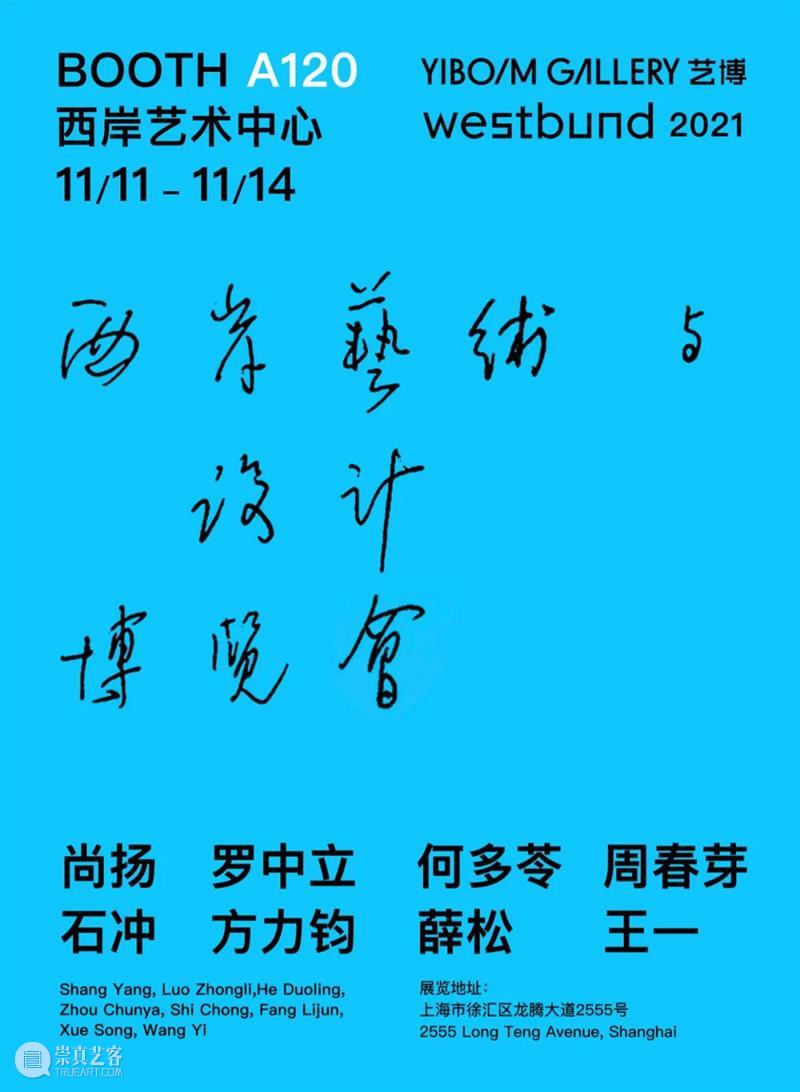 BOOTH A120
西岸艺术中心
11/11 – 11/14
YIBO/M GALLERY 艺博
westbund 2021
西岸藝術与
设计
博覽會
尚扬 罗中立 何多苓 周春芽
石冲 方力钧 薛松 王一
Shang Yang, Luo Zhongli,He Duoling,
Zhou Chunya, Shi Chong, Fang Lijun,
Xue Song, Wang Yi
展览地址：
上海市徐汇区龙腾大道2555号
2555 Long Teng Avenue, Shanghai
崇真艺客
WWW.TRUEART.COM